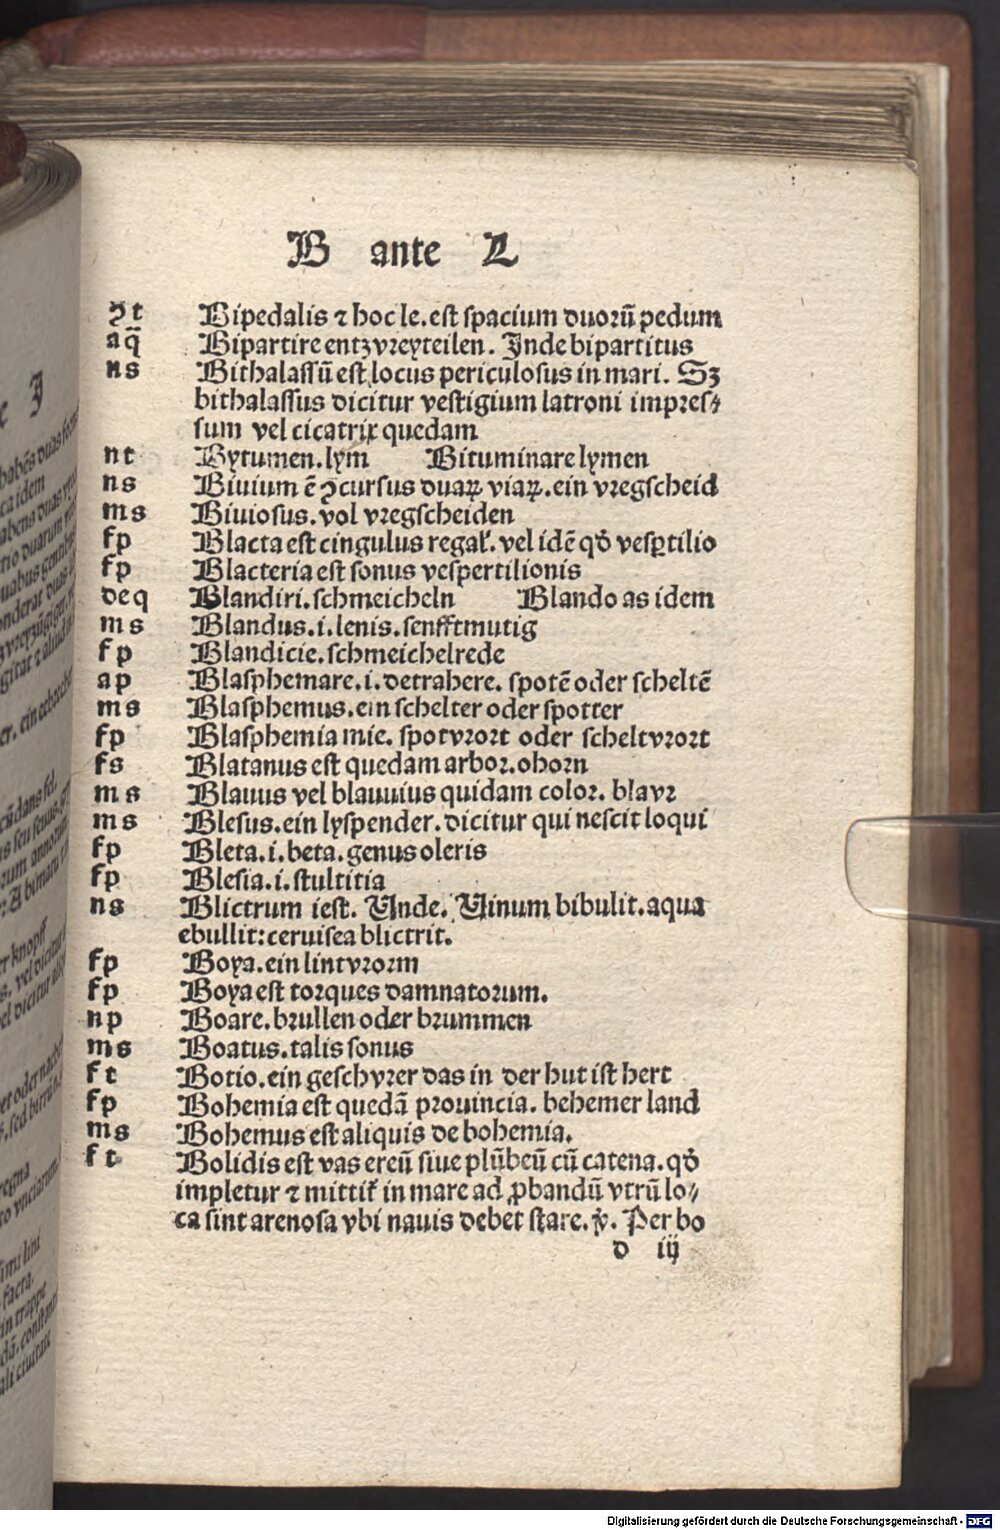 B ante L
ꝯt Bipedalis ⁊ hoc le. est spacium duorū pedum
aq̄ Bipartire entzwreyteilen. Inde bipartitus
ns Bithalassū est locus periculosus in mari. Sz
bithalassus dicitur vestigium latroni impres⸗
sum vel cicatrix quedam
nt Bytumen. lym Bituminare lymen
ns Biuium ē ꝯcursus duaꝝ viaꝝ. ein wegscheid
ms Biuiosus. vol wegscheiden
fp Blacta est cingulus regal̓. vel idē qđ vesꝑtilio
fp Blacteria est sonus vespertilionis
deq Blandiri. schmeicheln Blando as idem
ms Blandus. i. lenis. senfftmutig
fp Blandicie. schmeichelrede
ap Blasphemare. i. detrahere. spotē oder scheltē
ms Blasphemus. ein schelter oder spotter
fp Blasphemia mie. spotwort oder scheltwort
fs Blatanus est quedam arbor. ohorn
ms Blauus vel blauuius quidam color. blaw
ms Blesus. ein lyspender. dicitur qui nescit loqui
fp Bleta. i. beta. genus oleris
fp Blesia. i. stultitia
ns Blictrum iest. Unde. Uinum bibulit. aqua
ebullit: ceruisea blictrit.
fp Boya. ein lintworm
fp Boya est torques damnatorum.
np Boare. brullen oder brummen
ms Boatus. talis sonus
ft Botio. ein geschwer das in der hut ist hert
fp Bohemia est quedā prouincia. behemer land
ms Bohemus est aliquis de bohemia.
ft Bolidis est vas ereū siue plūbeū cū catena. qđ
impletur ⁊ mittit̉ in mare ad ꝓbandū vtrū lo⸗
ca sint arenosa vbi nauis debet stare. ꝟ. Per bo
d iij
Digitalisierung gefördert durch die Deutsche Forschungsgemeinschaft - DFG